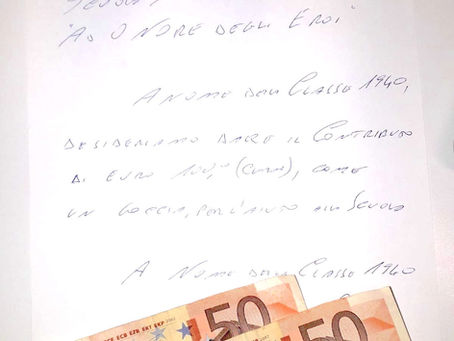 SCUOLA
"AD ONORE DEGLI EROI"
A NOME DELLA CLASSE 1940,
DESIDERIAMO DARE IL CONTRIBUTO
DI EURO 100,00 (CENTO), COME
UN GOCCIA, PER L'AIUTO ALLA SCUOLA
A NOME DELLA CLASSE 1940
50
50